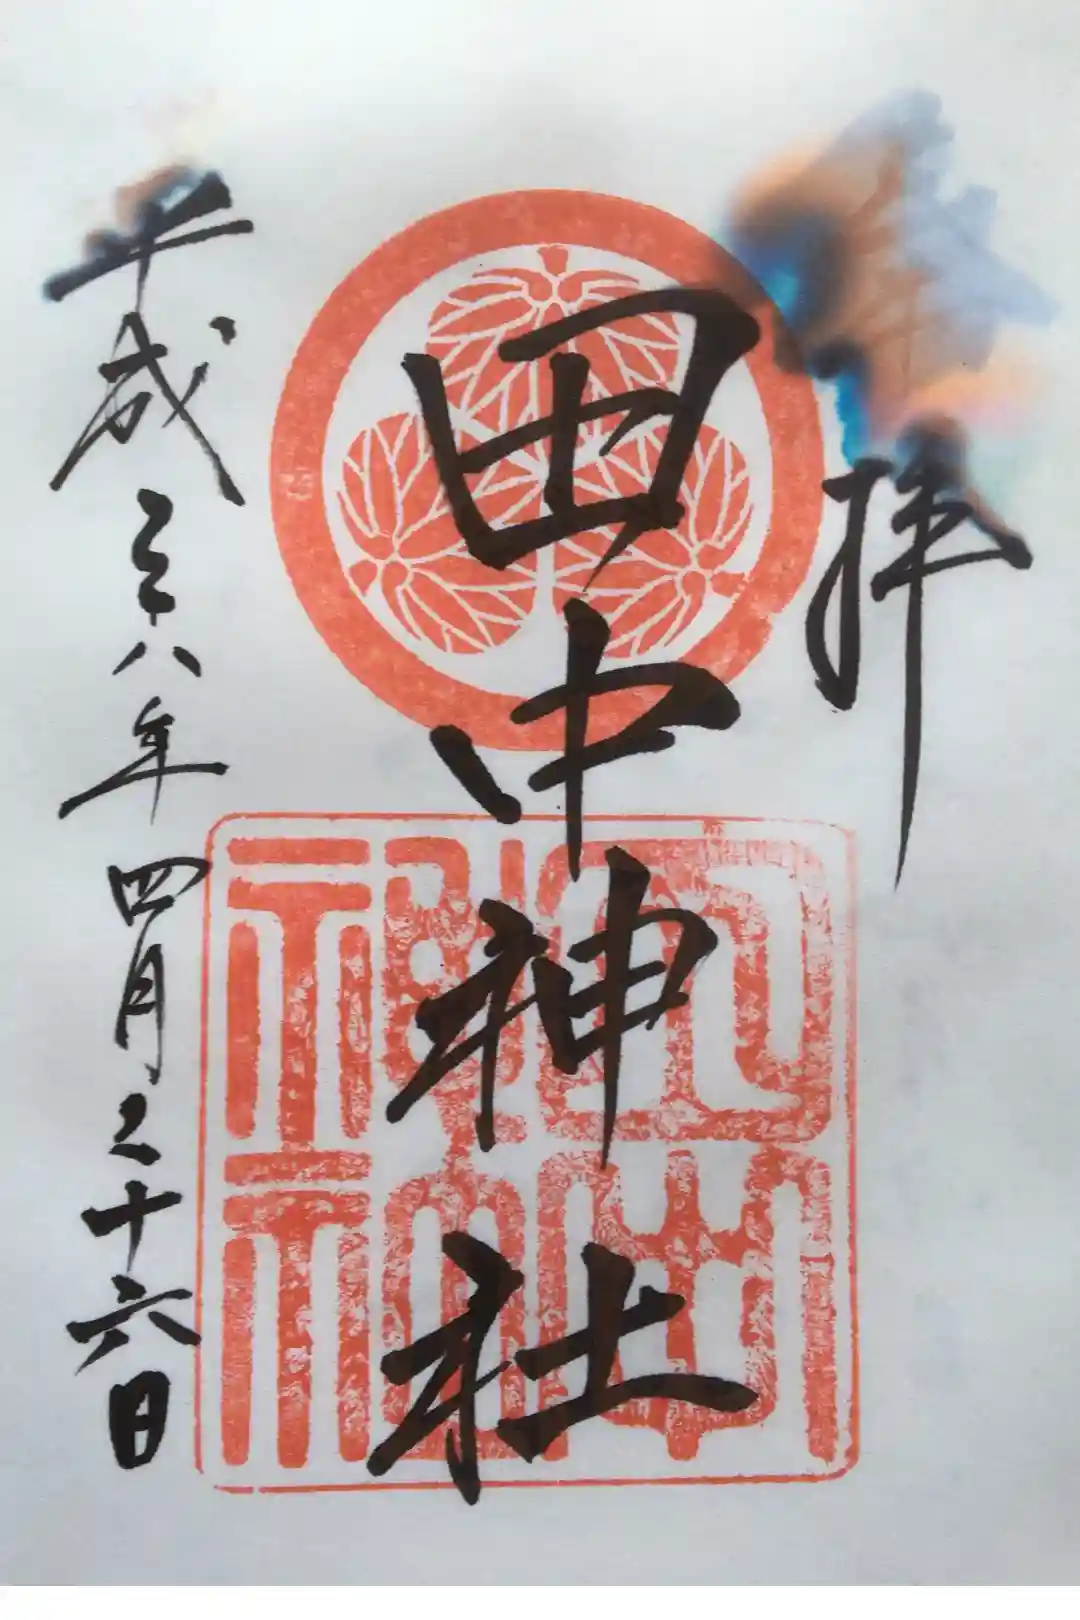 拝
田中神社
平成二十八年四月二十六日